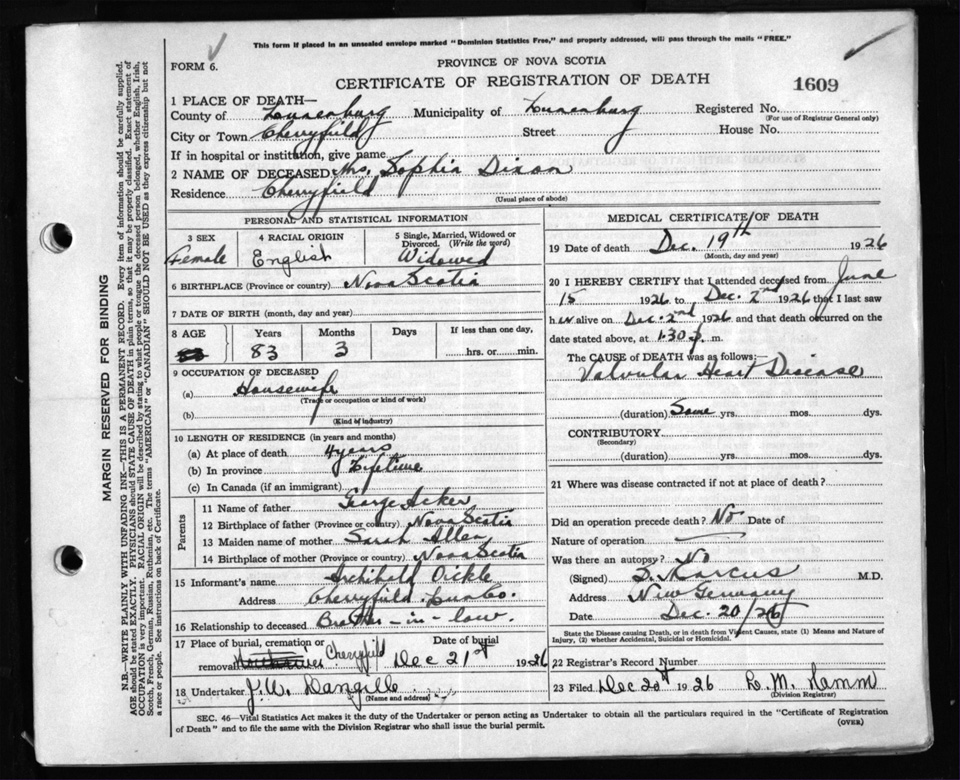 This form if placed in an unsealed envelope marked "Dominion Statistics Free," and properly addressed, will pass through the mails "FREE."
FORM 6.
PROVINCE OF NOVA SCOTIA
CERTIFICATE OF REGISTRATION OF DEATH
1609
1 PLACE OF DEATH—
County of Lunenburg Municipality of Lunenburg Registered No.
(For use of Registrar General only)
City or Town Cherryfield Street House No.
If in hospital or institution, give name
2 NAME OF DECEASED Mrs. Sophia Dixon
Residence Cherryfield
(Usual place of abode)
PERSONAL AND STATISTICAL INFORMATION
3 SEX 4 RACIAL ORIGIN 5 Single, Married, Widowed or Divorced. (Write the word)
Female English Widowed
6 BIRTHPLACE (Province or country) Nova Scotia
7 DATE OF BIRTH (month, day and year)
8 AGE Years Months Days If less than one day,
83 3 hrs. or min.
9 OCCUPATION OF DECEASED
(a) Housewife
(Trade or occupation or kind of work)
(b)
(Kind of industry)
10 LENGTH OF RESIDENCE (in years and months)
(a) At place of death 4 years
(b) In province Lifetime
(c) In Canada (if an immigrant)
Parents
11 Name of father George Acker
12 Birthplace of father (Province or country) Nova Scotia
13 Maiden name of mother Sarah Allen
14 Birthplace of mother (Province or country) Nova Scotia
15 Informant's name Archibald Oickle
Address Cherryfield Lun Co.
16 Relationship to deceased Brother-in-law.
17 Place of burial, cremation or removal Cherryfield Date of burial Dec 21st 1926
18 Undertaker J.W.
(Name and address)
MEDICAL CERTIFICATE OF DEATH
19 Date of death Dec. 19th 1926
(Month, day and year)
20 I HEREBY CERTIFY that I attended deceased from June
15 1926 to Dec. 2nd 1926 that I last saw
her alive on Dec. 2nd 1926 and that death occurred on the
date stated above, at 1.30 p. m.
The CAUSE of DEATH was as follows:
Valvular Heart Disease
(duration) Some yrs. mos. dys.
CONTRIBUTORY
(Secondary)
(duration) yrs. mos. dys.
21 Where was disease contracted if not at place of death?
Did an operation precede death? No Date of
Nature of operation
Was there an autopsy? No
(Signed) D. Marcus M.D.
Address New Germany
Date Dec. 20/26
State the Disease causing Death, or in death from Violent Causes, state (1) Means and Nature of Injury, (2) whether Accidental, Suicidal or Homicidal.
22 Registrar's Record Number
23 Filed Dec 20t 1926 L. M. Hamm
(Division Registrar)
SEC. 46—Vital Statistics Act makes it the duty of the Undertaker or person acting as Undertaker to obtain all the particulars required in the "Certificate of Registration
of Death" and to file the same with the Division Registrar who shall issue the burial permit. (OVER)
MARGIN RESERVED FOR BINDING
N.B.—WRITE PLAINLY WITH UNFADING INK—THIS IS A PERMANENT RECORD. Every item of information should be carefully supplied.
AGE should be stated EXACTLY. PHYSICIANS should STATE CAUSE OF DEATH in plain terms, so that it may be properly classified. Exact statement of
OCCUPATION is very important. RACIAL ORIGIN will be described by stating to what people or tongue the deceased person belonged, whether English, Irish,
Scotch, French, German, Russian, Ruthenian, etc. The terms "AMERICAN" or "CANADIAN" SHOULD NOT BE USED as they express citizenship but not
a race or people. See instructions on back of Certificate.